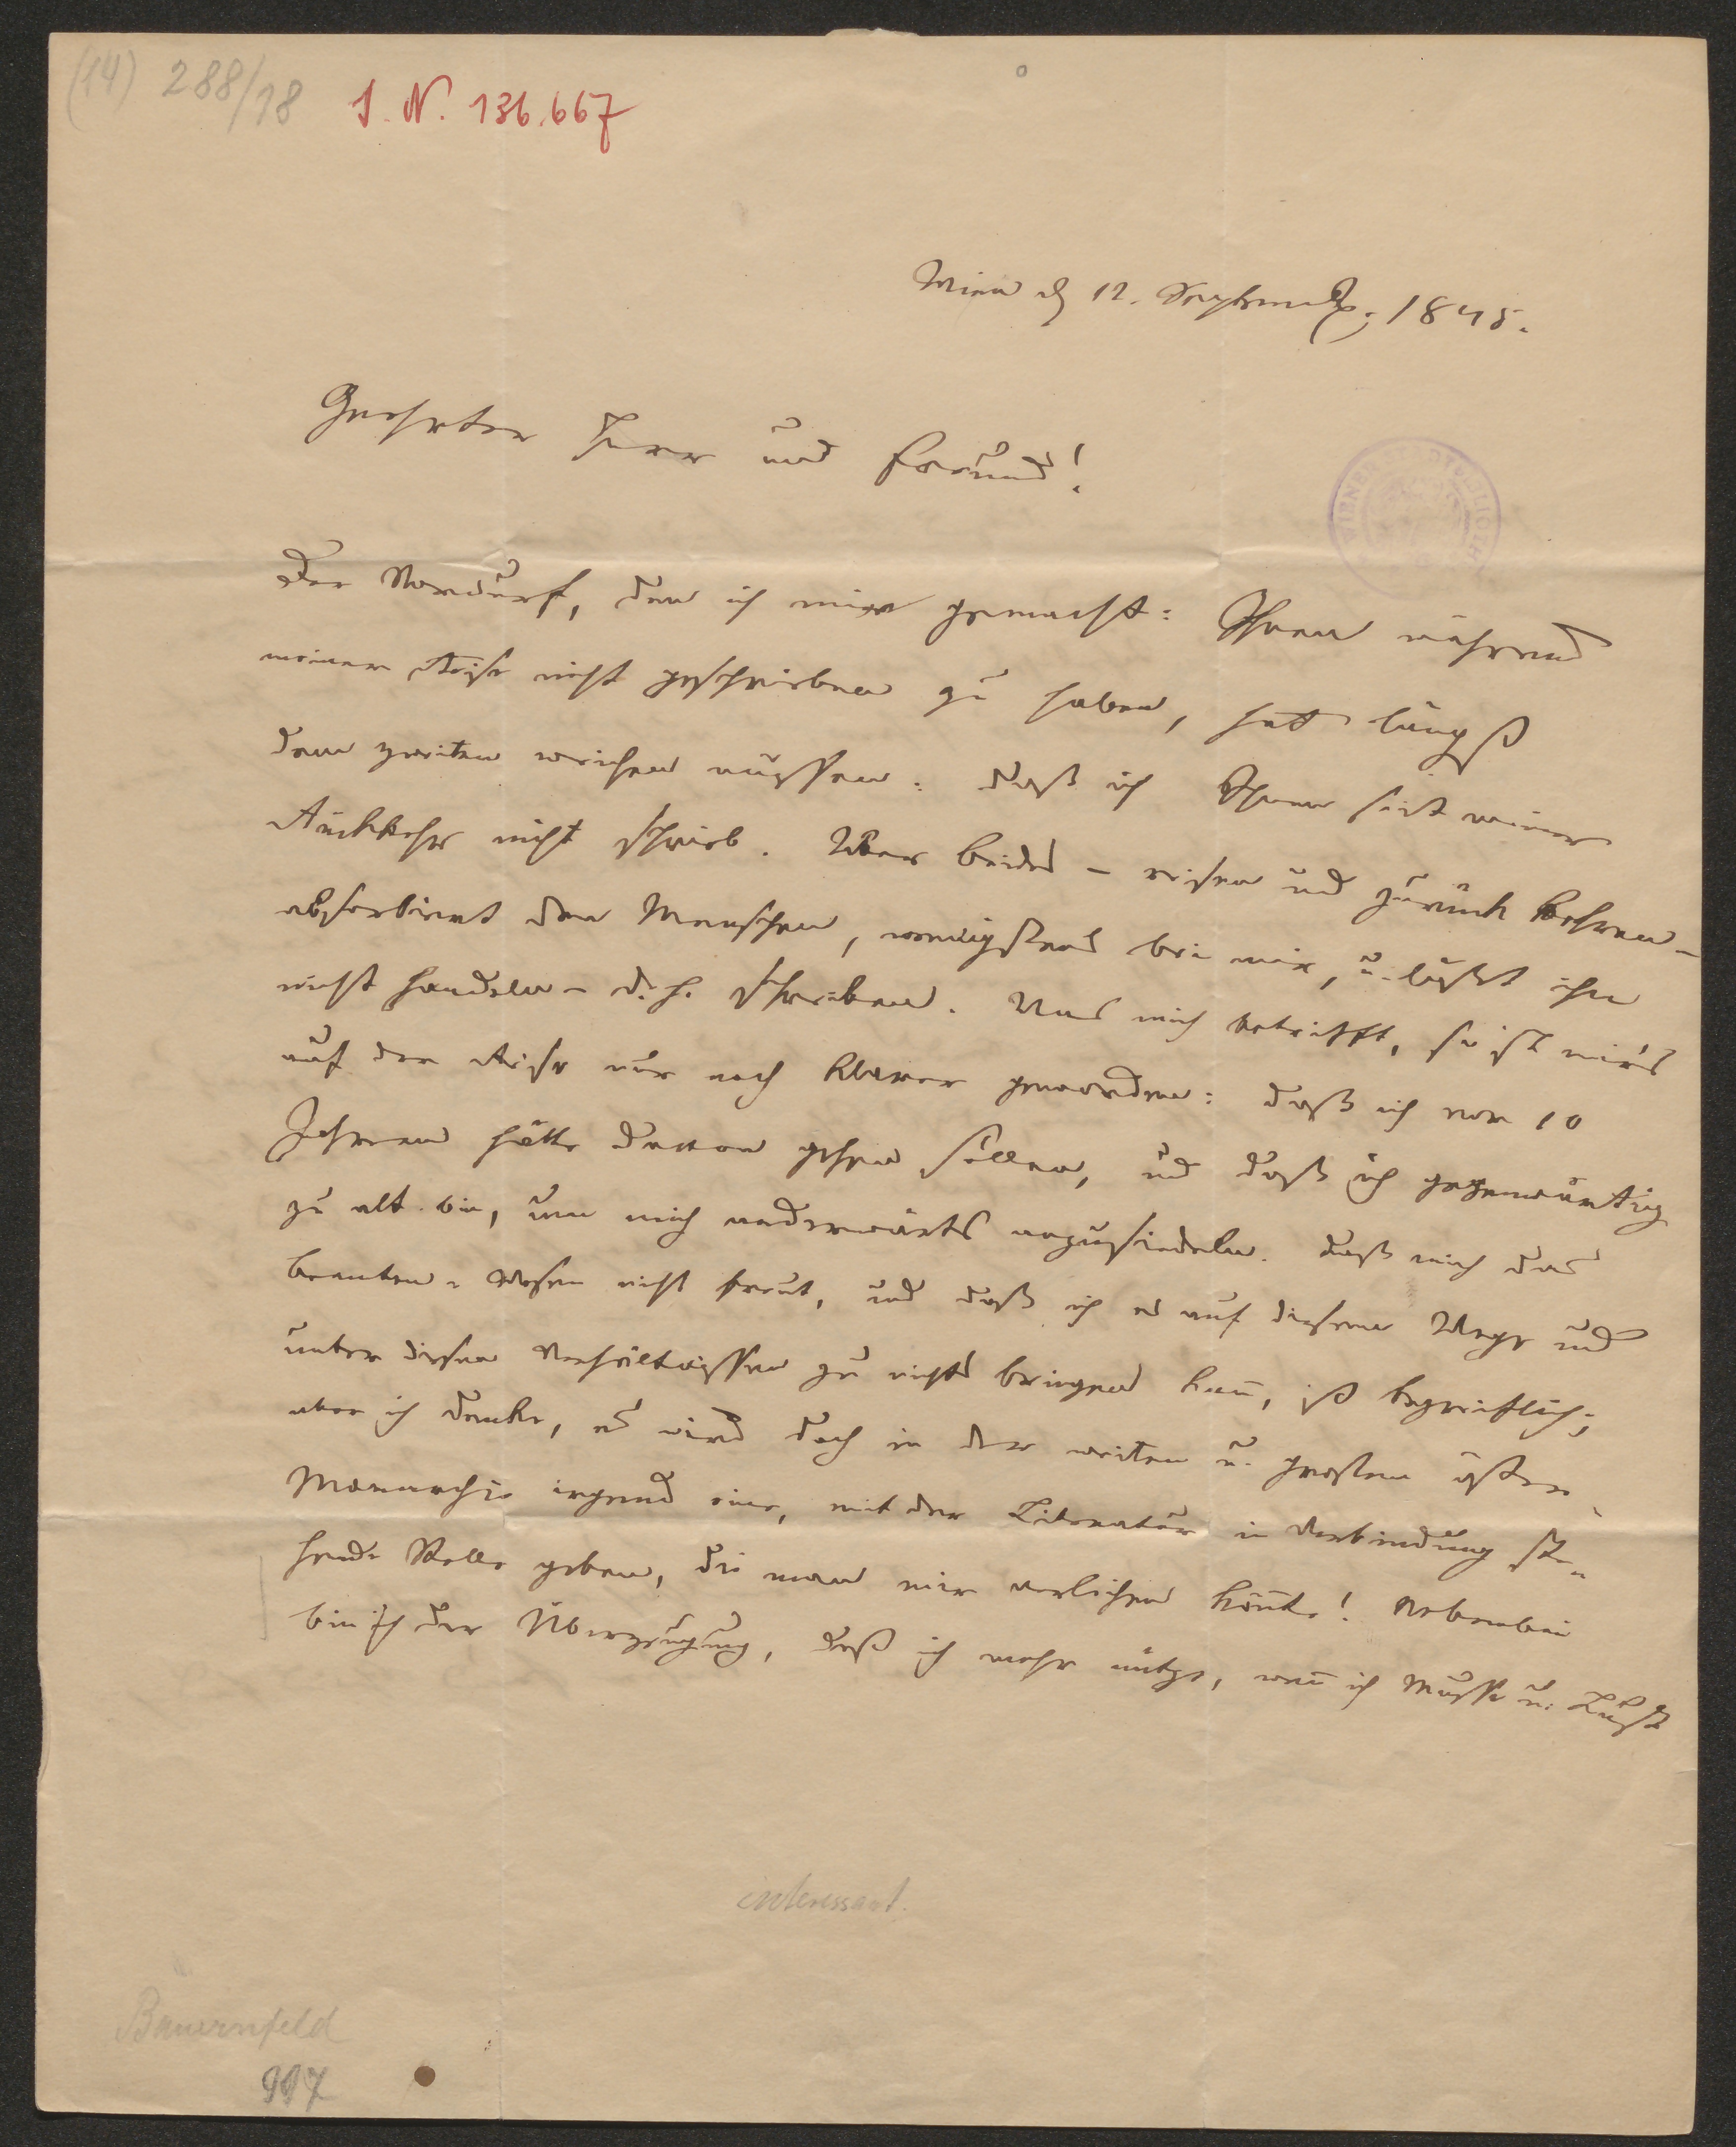 (14) 288/18 I. N. 136.667
Wien d 12. September 1845.
WIENER STADTBIBLIOTHEK
Geehrter Herr und Freund!
Der Vorwurf, den ich mir gemacht: Ihnen während
meiner Reise nicht geschrieben zu haben, hat längst
dem zweiten weichen müssen: daß ich Ihnen seit meiner
Rückkehr nicht schrieb. Aber beides – reisen und zurück kehren –
absorbirt den Menschen, wenigstens bei mir, u. läßt ihn
nicht handeln – d. h. schreiben. Was mich betrifft, so ist mir's
auf der Reise nur noch klarer geworden: daß ich vor 10
Jahren hätte davon gehen sollen, und daß ich gegenwärtig
zu alt bin, um mich anderwärts anzusiedeln. Daß mich das
Beamten-Wesen nicht freut, und daß ich es auf diesem Wege und
unter diesen Verhältnissen zu nichts bringen kan̄, ist begreiflich;
aber ich denke, es wird doch in der weiten u. großen österr.
Monarchie irgend eine, mit der Literatur in Verbindung ste-
hende Stelle geben, die man mir verleihen kön̄te! Nebenbei
bin ich der Überzeugung, daß ich mehr nütze, wen̄ ich Musse u. Lust
interessant.
Bauernfeld
997